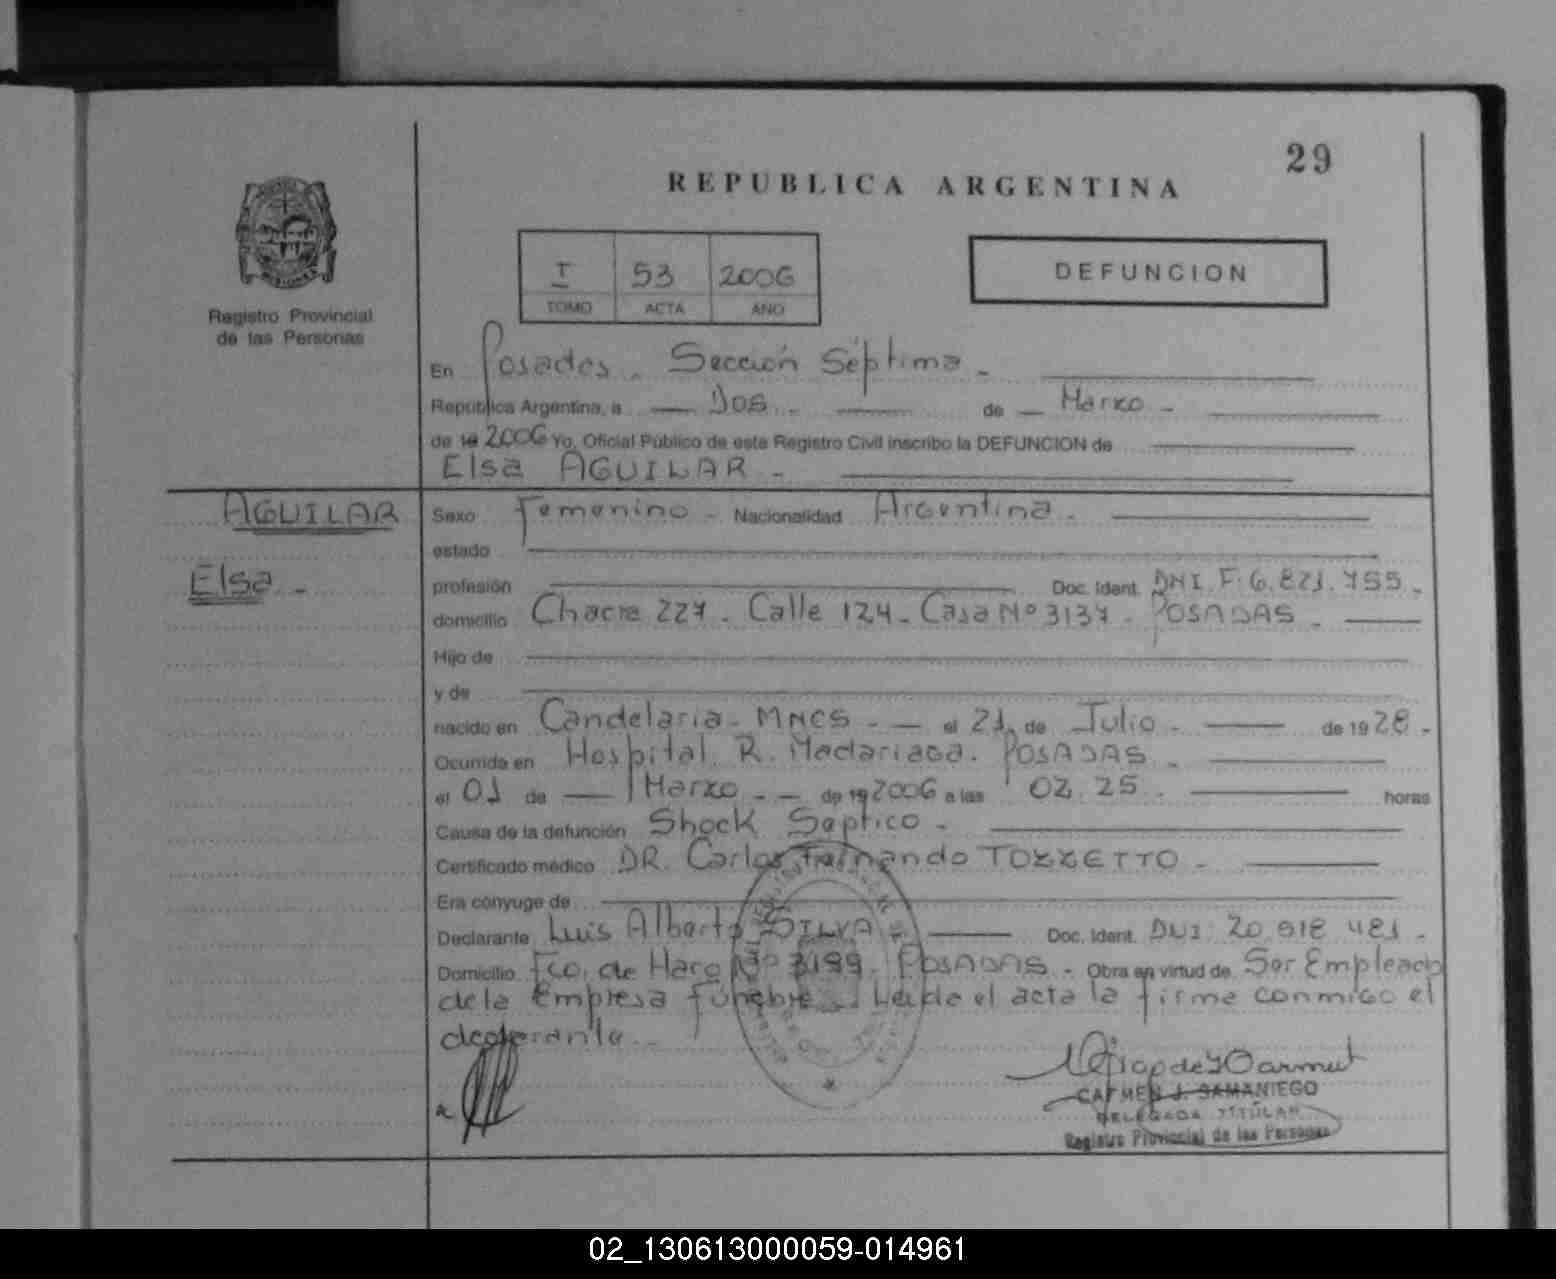 29
REPUBLICA ARGENTINA
I 53 2006
TOMO ACTA AÑO
DEFUNCION
Registro Provincial
de las Personas
En Posadas. Sección Séptima.
República Argentina, a Dos. de Marzo.
de 19 2006 Yo, Oficial Público de este Registro Civil inscribo la DEFUNCION de
Elsa AGUILAR.
AGUILAR
Elsa.
Sexo Femenino. Nacionalidad Argentina.
estado
profesión Doc. Ident. DNI. F. 6.821.755.
domicilio Chacra 227. Calle 124. Casa Nº 3137. POSADAS.
Hijo de
y de
nacido en Candelaria. MNES. el 21, de Julio. de 1928.
Ocurrida en Hospital. R. Madariaga. POSADAS.
el 01 de Marzo. de 19 2006 a las 02.25. horas
Causa de la defunción Shock Septico.
Certificado médico DR. Carlos Fernando TOZZETTO.
Era cónyuge de
Declarante Luis Alberto SILVA. Doc. Ident. DNI: 20.918.481.
Domicilio Fco. de Haro Nº 3199. POSADAS. Obra en virtud de Ser Empleado
de la Empresa Fúnebre. Leida el acta la firma conmigo el
CARMEN J. SAMANIEGO
DELEGADA TITULAR
Registro Provincial de las Personas
02_130613000059-014961